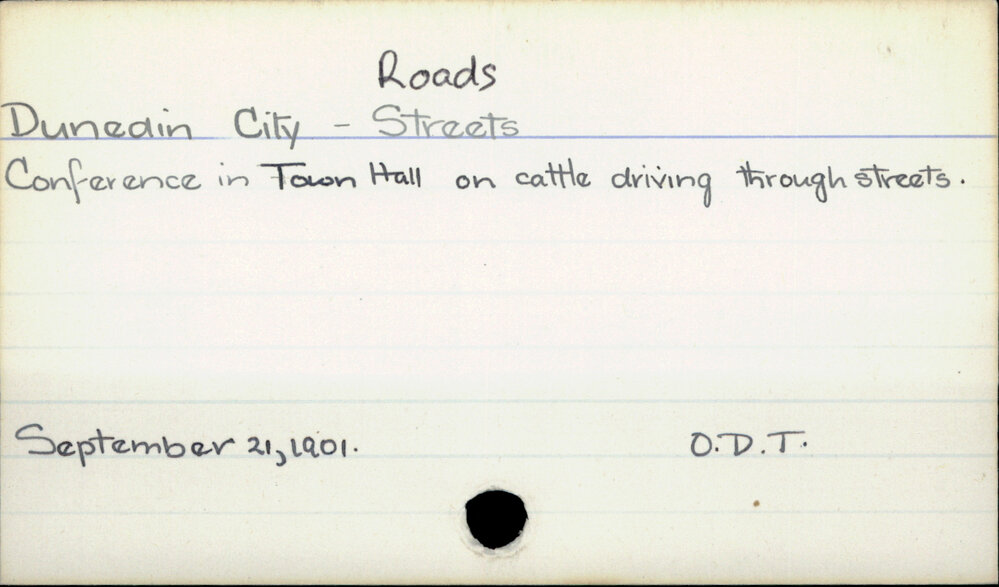 Roads
Dunedin City - Streets
Conference in Town Hall on cattle driving through streets.
September 21, 1901. O.D.T.